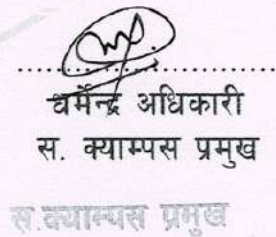 धर्मेन्द्र अधिकारी
स. क्याम्पस प्रमुख
स.क्याम्पस प्रमुख